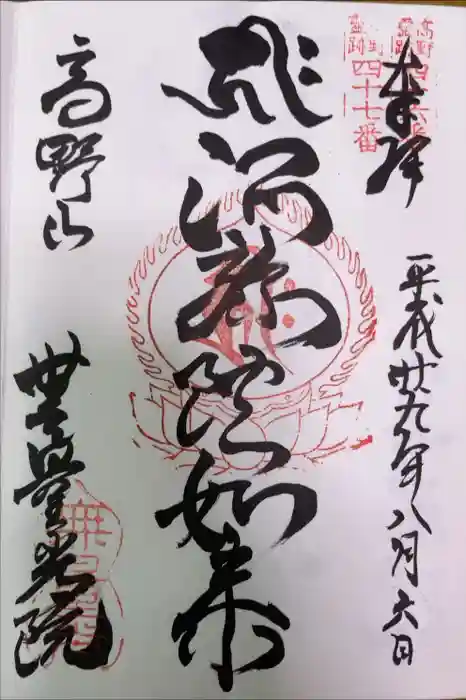 奉拝
平成廿九年八月六日
四十七番
阿弥陀如来
高野山
無量光院